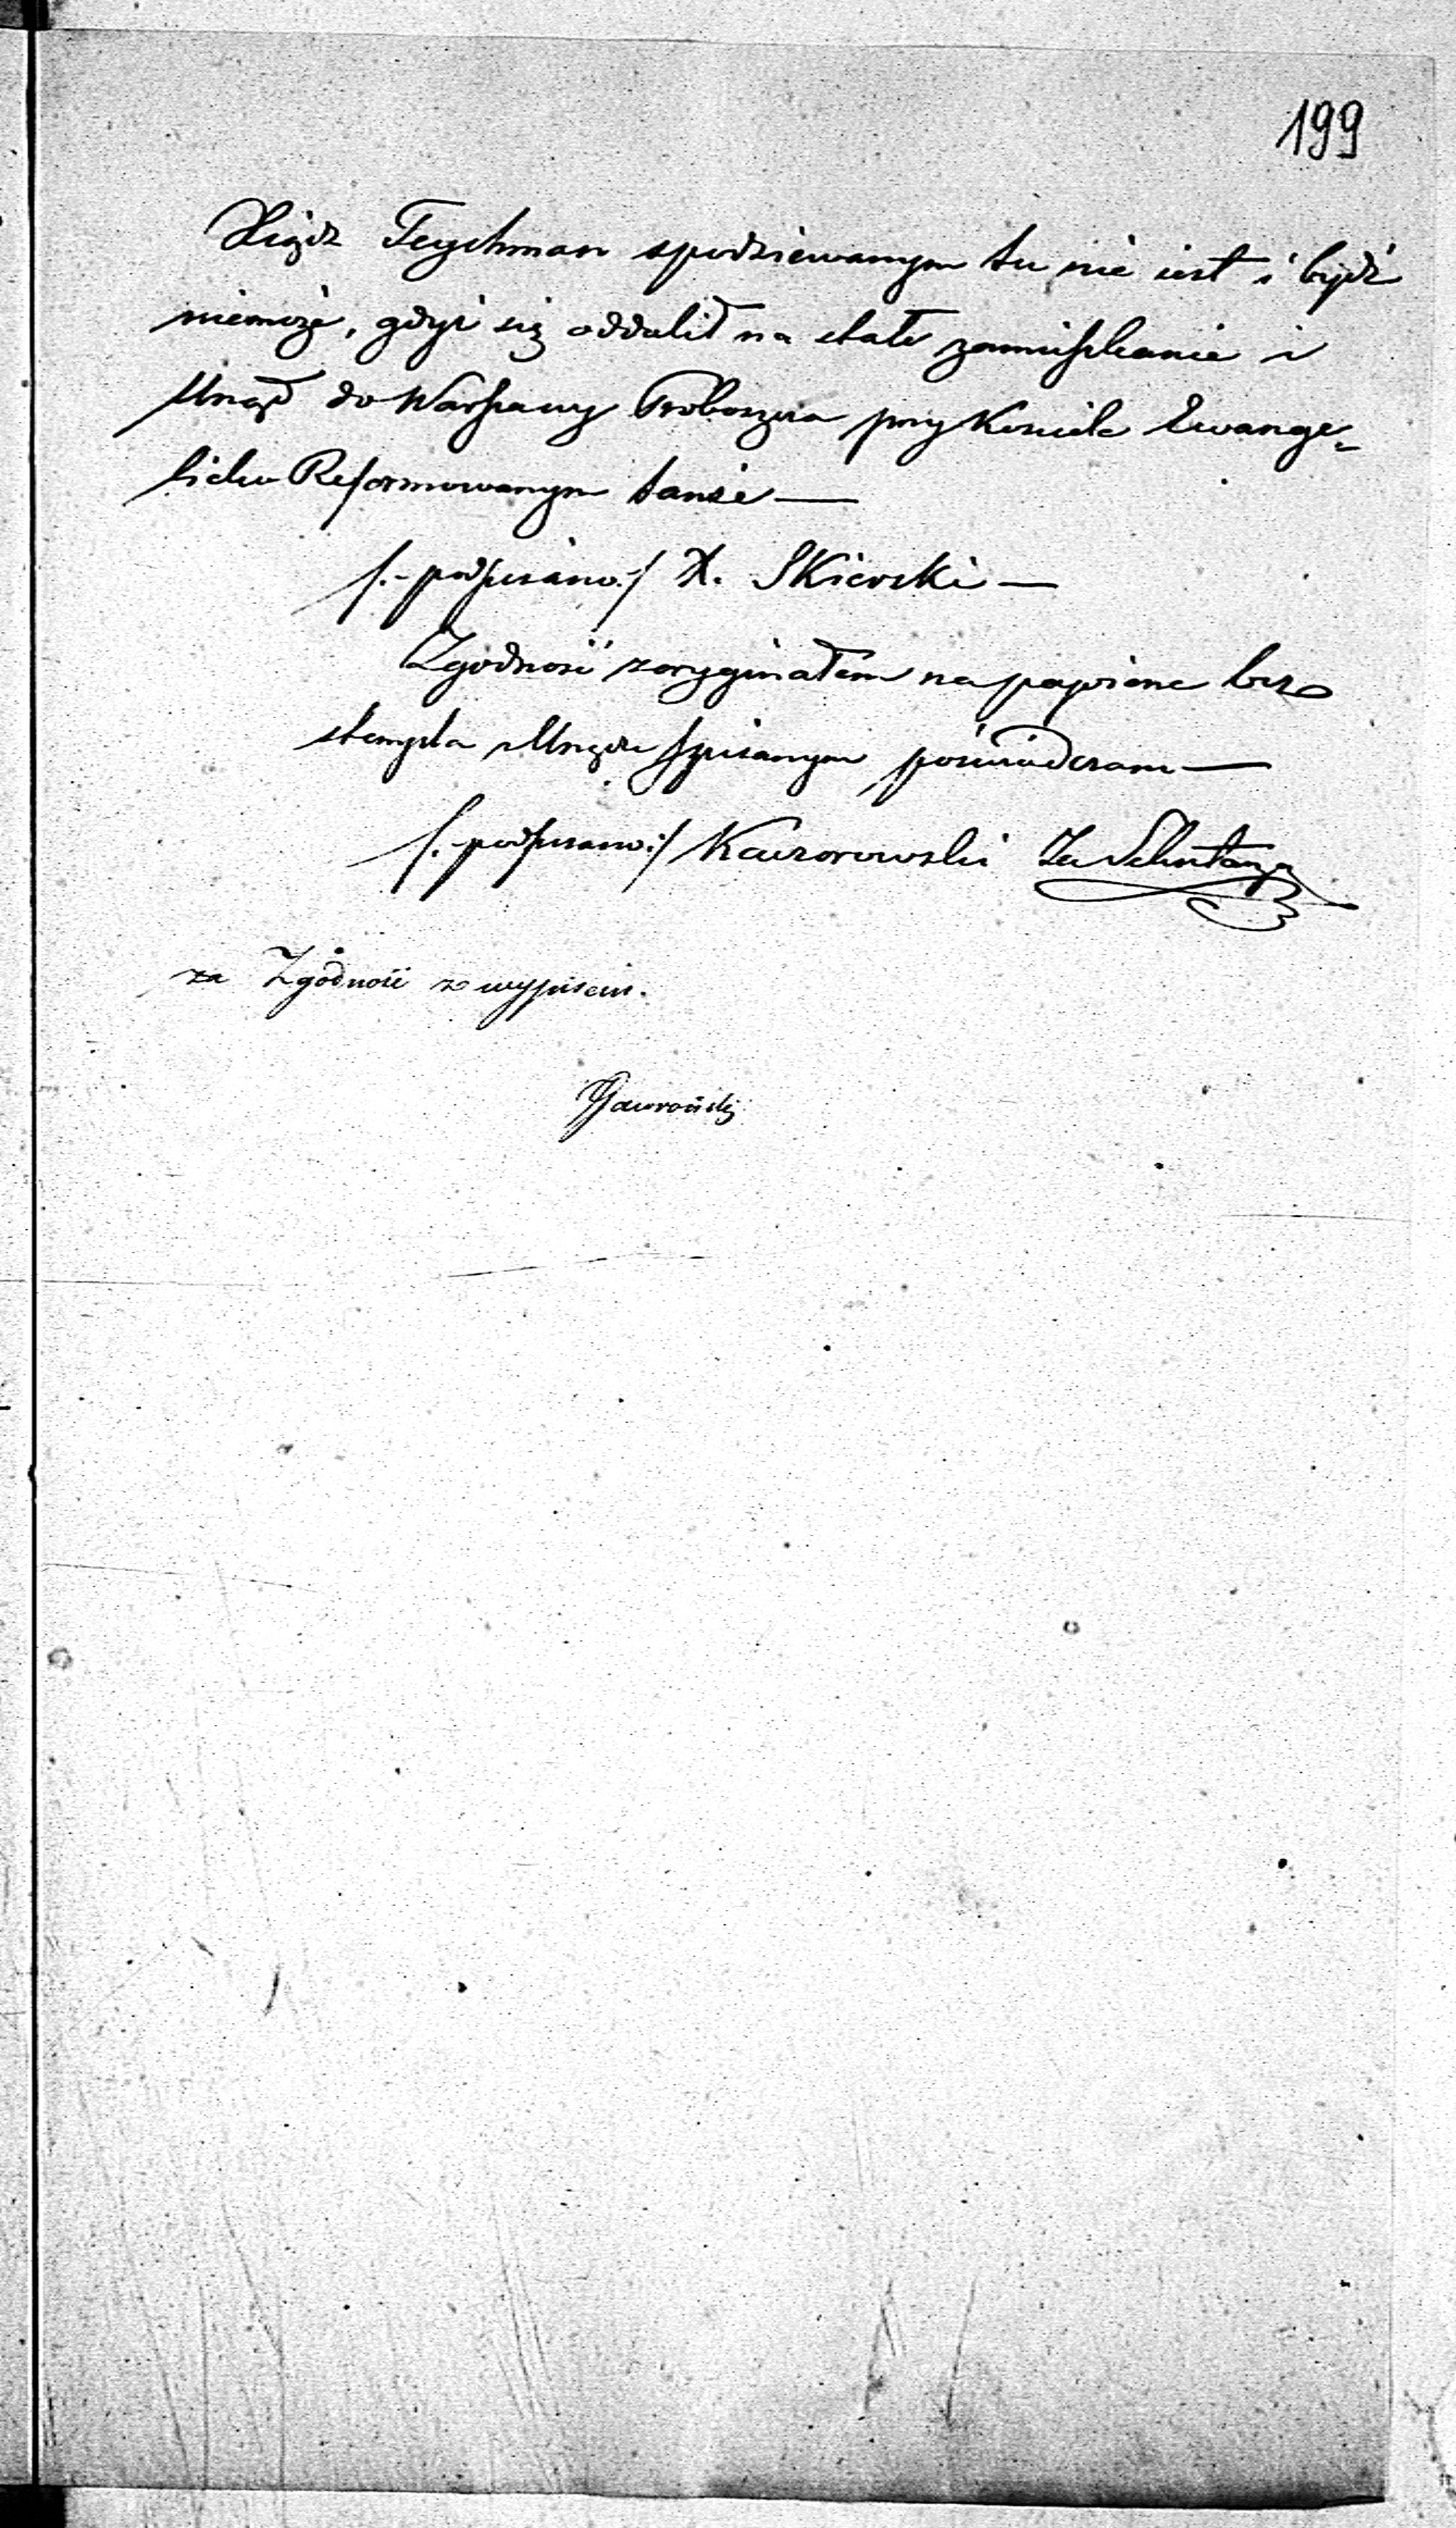 199
Xiądz Teychman spodziewanym tu nie iest i bydź
niemoże, gdyż się oddalił na stałe zamieszkanie i
Urząd do Warszawy Proboszcza przy Kosciele Ewange-
licko Reformowanym tamże —
/.- podpisano:/ X. Skierski —
Zgodność z oryginałem na papierze bez
stempla z Urzędu spisanym poświadczam —
/.- podpisano:/ Kaczorowski Za
za Zgodność z wypisem.
Jaworoński